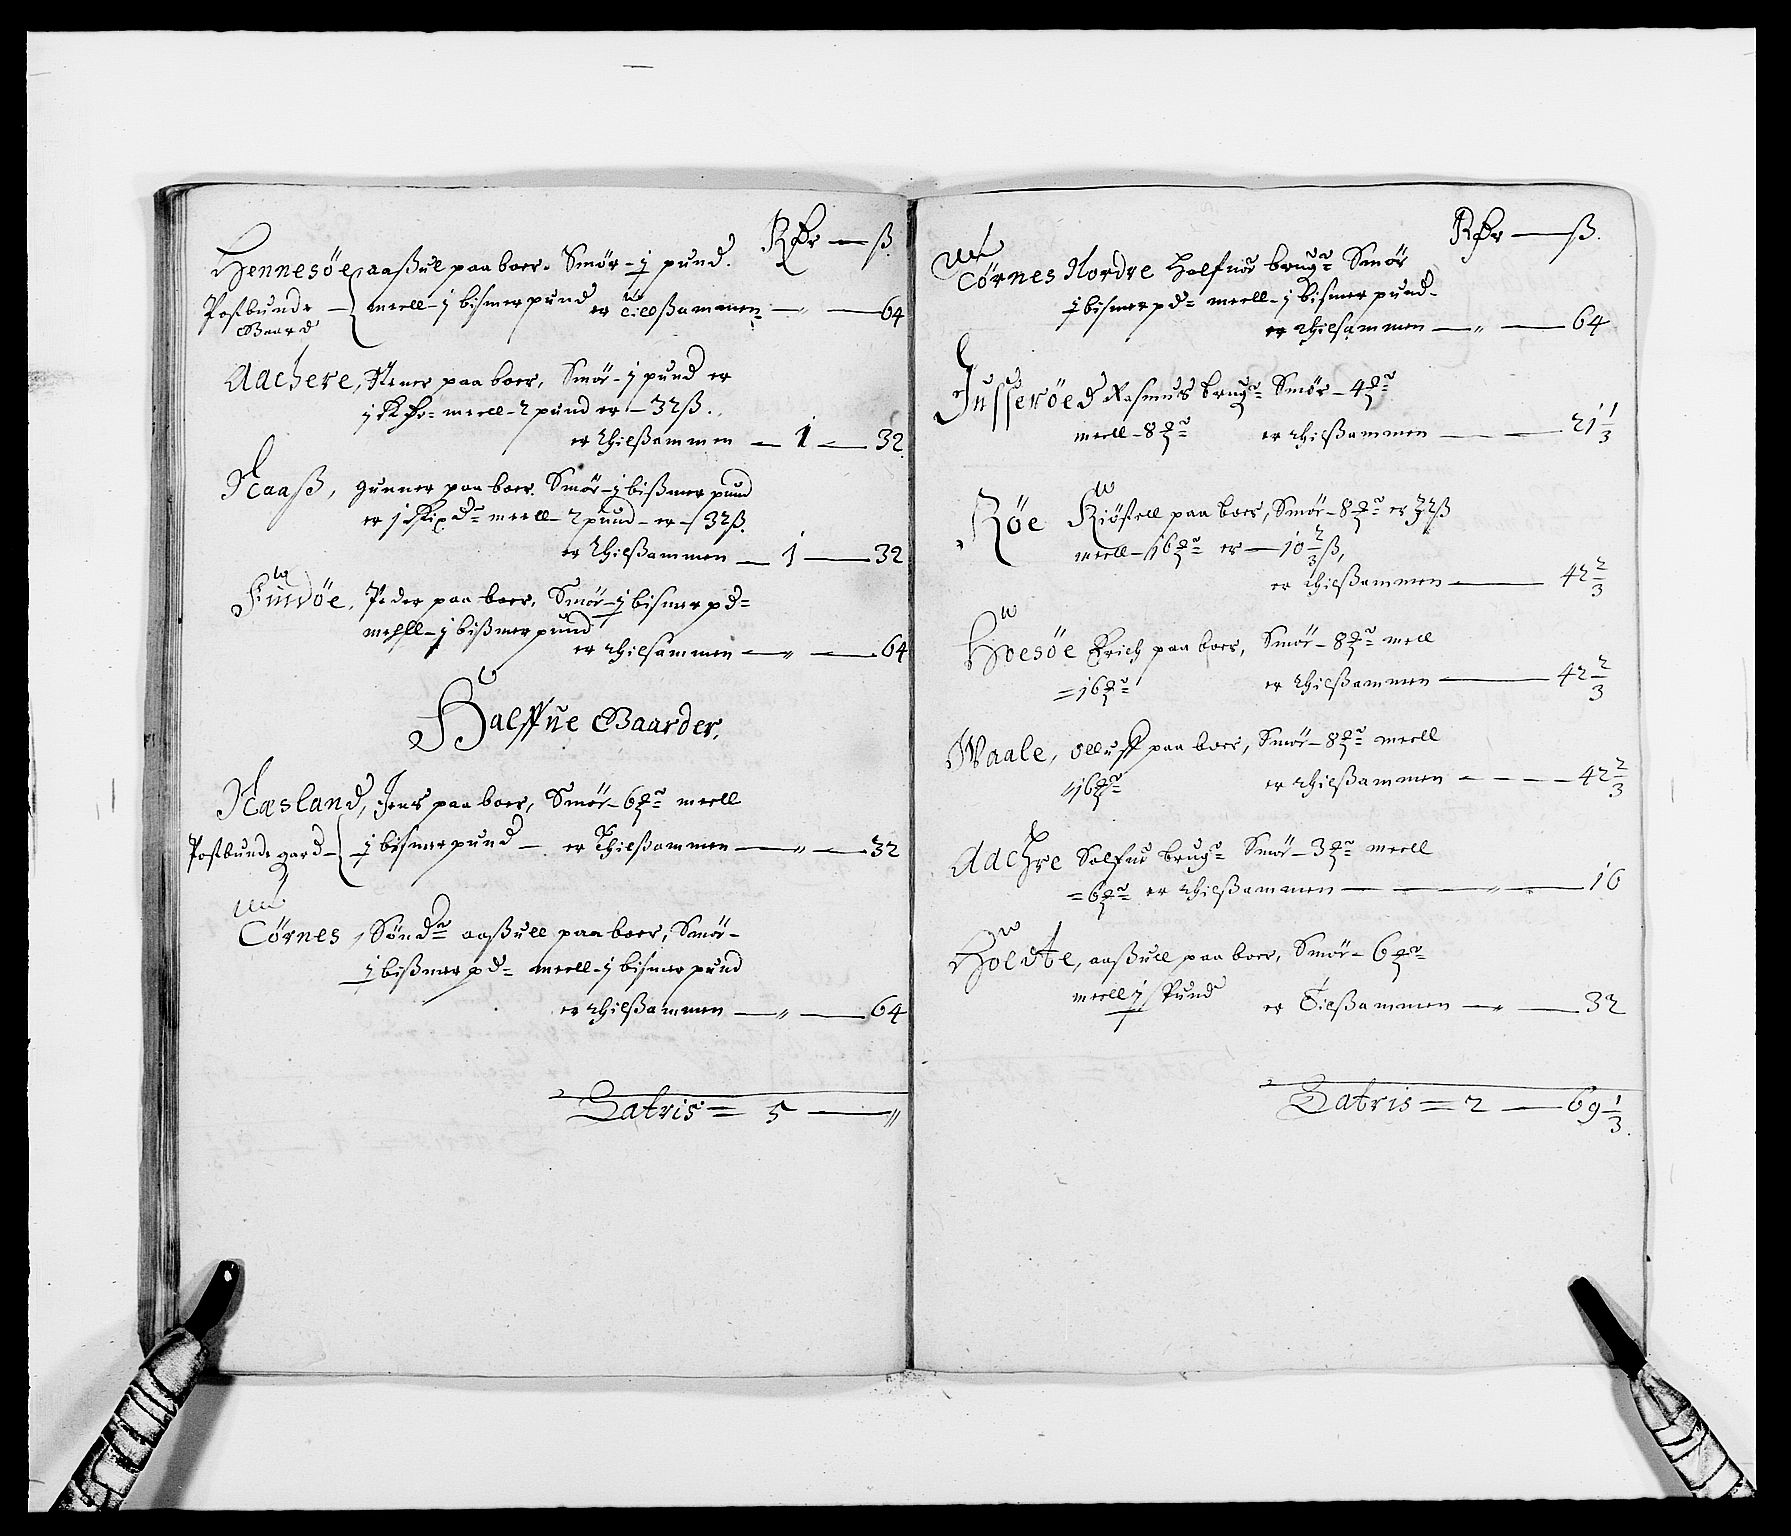 Rdr — ß
Hennesøe, aaßul paa boer. Smør - j pund.
Postbunde Gaard { meell - j bismerpund er tillsammen — „ — 64
Aachere, Stener paa boer, Smør - j pund er
j Rdr = meell - 2 pund er - 32 ß.
er thilßammen — 1 — 32
Naaß, gunner paa boer. Smør - j bißmer pund
er j meell - 2 pund - er - 32 ß.
er thilßammen — 1 — 32
Findøe, Peder paa boer, Smør - j bismer pd =
mehll - j bißmer pund
er thilsammen — „ — 64
Halffue Gaarder.
Næsland, Jens paa boer, Smør - 6 meell
Postbunde gard - { j bismerpund - er Thilßammen — „ — 32
Tørnes, Sønd aaßull paa boer, Smør -
j bißmer pd = meell - j bismer pund
er thilßammen — „ — 64
Latris = 5 — „
Rdr — ß.
Tørnes Nordre Halfuor brug Smør
j bismer pd = meell - j bismer pund -
er thilsammen — „ — 64
Jusserøed Rasmus brug Smør - 4
meell - 8 er thilßammen — 21 1/3
Røe Kiøstell paa boer, Smør - 8 er 32 ß
meell - 16 er — 10 2/3 ß,
er thilßammen — 42 2/3
Hoesøe Erich paa boer, Smør - 8 meell
= 16 er thilßammen — 42 2/3
Waale, olluff paa boer, Smør - 8 meell
16 er thilßammen - - - 42 2/3
Aachre Salfue brug Smør - 3 meell
= 6 er thilßammen — „ — 16
Holdte, aaßull paa boer, Smør - 6
meell j Pund er Tilßammen — „ — 32
Latris = 2 — 69 1/3.